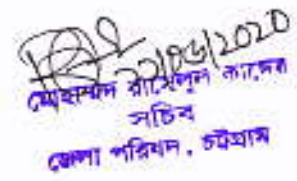 ২১/০৬/2020
মোহাম্মদ রাসেলুল কাদের
সচিব
জেলা পরিষদ, চট্টগ্রাম